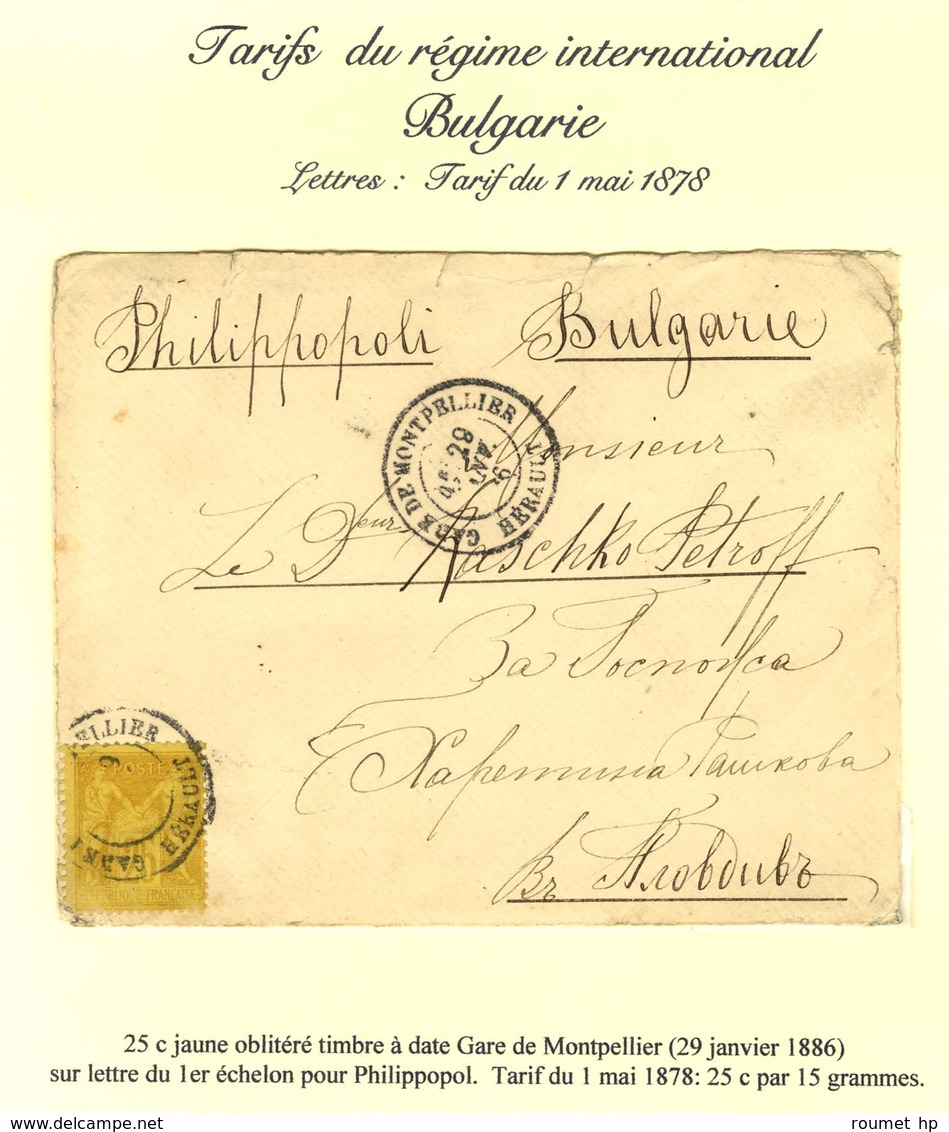 Tarifs du régime international
Bulgarie
Lettres : Tarif du 1 mai 1878
Philippopoli Bulgarie
GARE DE MONTPELLIER
29
JANV.
HÉRAULT
Monsieur
Le Dʳ Raschko Petroff
За Господса
Харетина Рашкова
Въ Пловдивъ
ELLIER
HÉRAULT
GARE
POSTE
REPUBLIQUE FRANÇAISE
25 c jaune oblitéré timbre à date Gare de Montpellier (29 janvier 1886)
sur lettre du 1er échelon pour Philippopol. Tarif du 1 mai 1878: 25 c par 15 grammes.
roumet hp